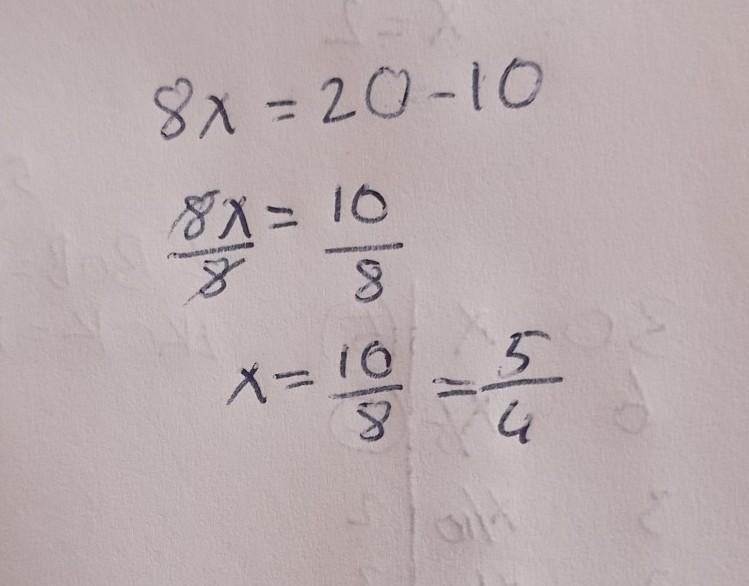 8x = 20 - 10
8x/8 = 10/8
x = 10/8 = 5/4